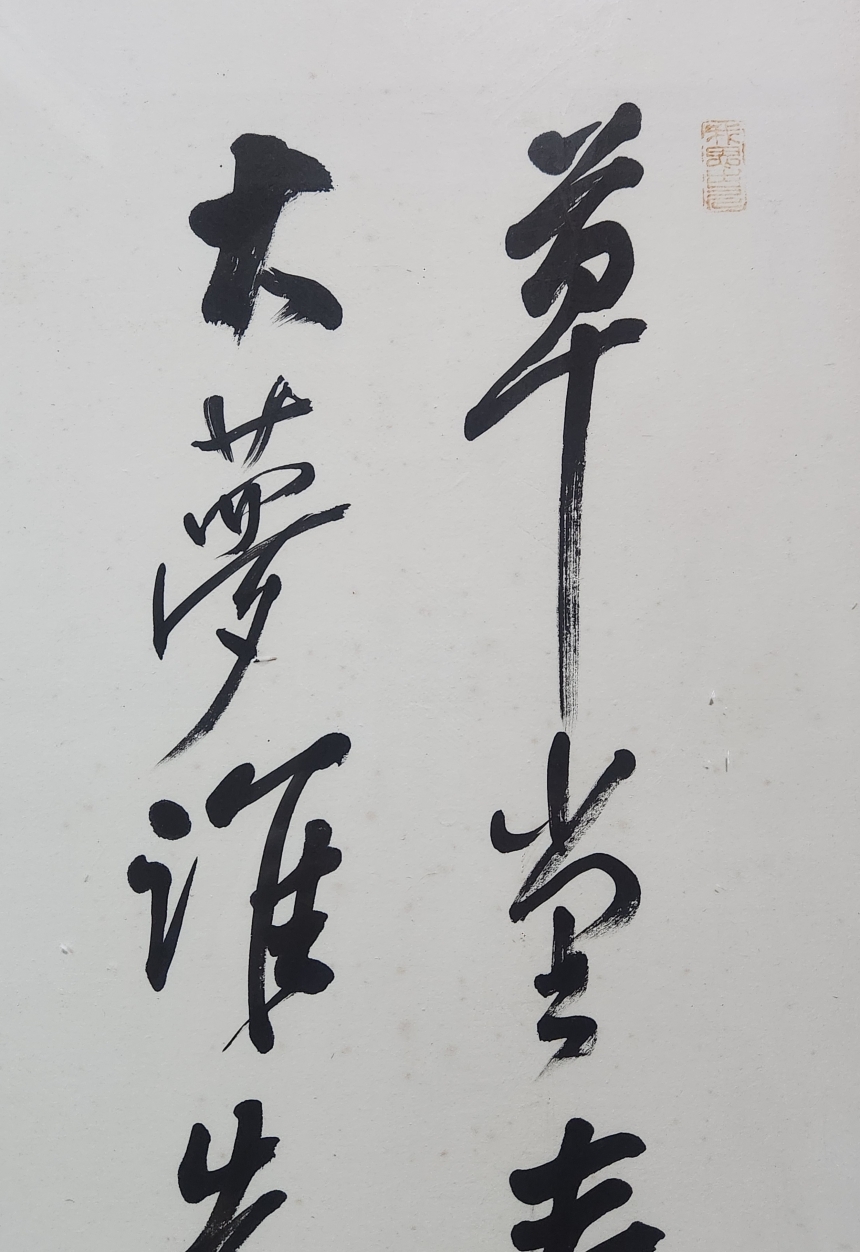 草堂春
大夢誰先